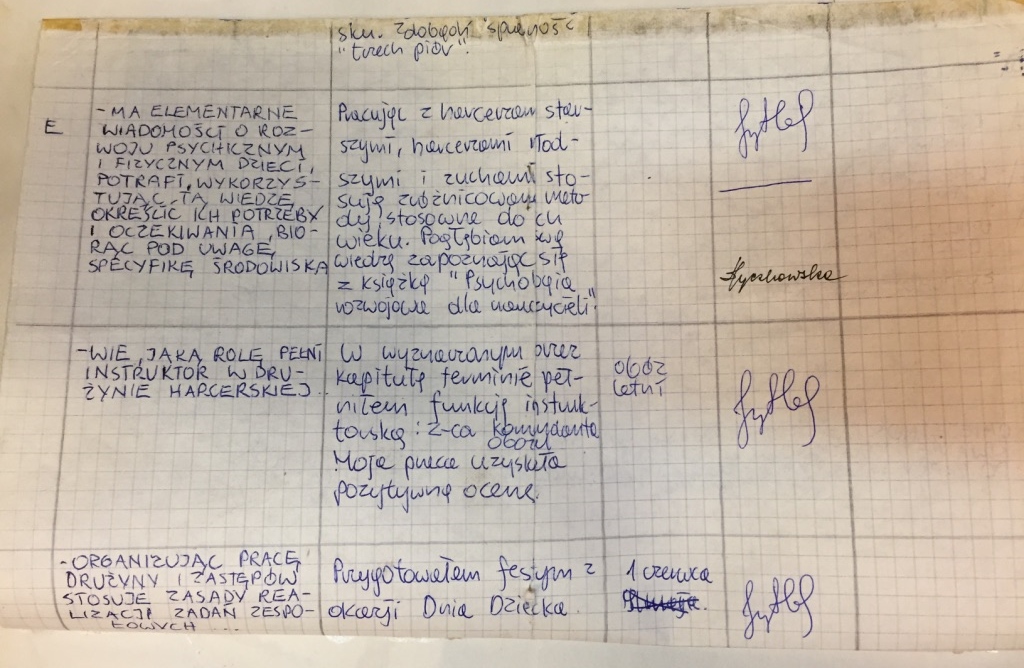 sku. zdobędę sprawność
"trzech piór".
E
- MA ELEMENTARNE
WIADOMOŚCI O ROZ-
WOJU PSYCHICZNYM
I FIZYCZNYM DZIECI,
POTRAFI, WYKORZYS-
TUJĄC TĄ WIEDZĘ,
OKREŚLIĆ ICH POTRZEBY
I OCZEKIWANIA, BIO-
RĄC POD UWAGĘ
SPECYFIKĘ ŚRODOWISKA
Pracując z harcerzam star-
szymi, harcerzami młod-
szymi i zuchami sto-
suję zróżnicowane meto-
dy stosowne do ich
wieku. Pogłębiam swą
wiedzę zapoznając się
z książką "Psychologia
rozwojowa dla nauczycieli".
Łyczkowska
- WIE, JAKĄ ROLĘ PEŁNI
INSTRUKTOR W DRU-
ŻYNIE HARCERSKIEJ
W wyznaczanym przez
kapitułę terminie peł-
niłem funkcję instruk-
torską: z-ca komendanta
obozu
Moja praca uzyskała
pozytywną ocenę.
obóz
letni
- ORGANIZUJĄC PRACĘ
DRUŻYNY I ZASTĘPÓW
STOSUJE ZASADY REA-
LIZACJI ZADAŃ ZESPO-
ŁOWYCH ...
Przygotowałem festyn z
okazji Dnia Dziecka.
1 czerwca